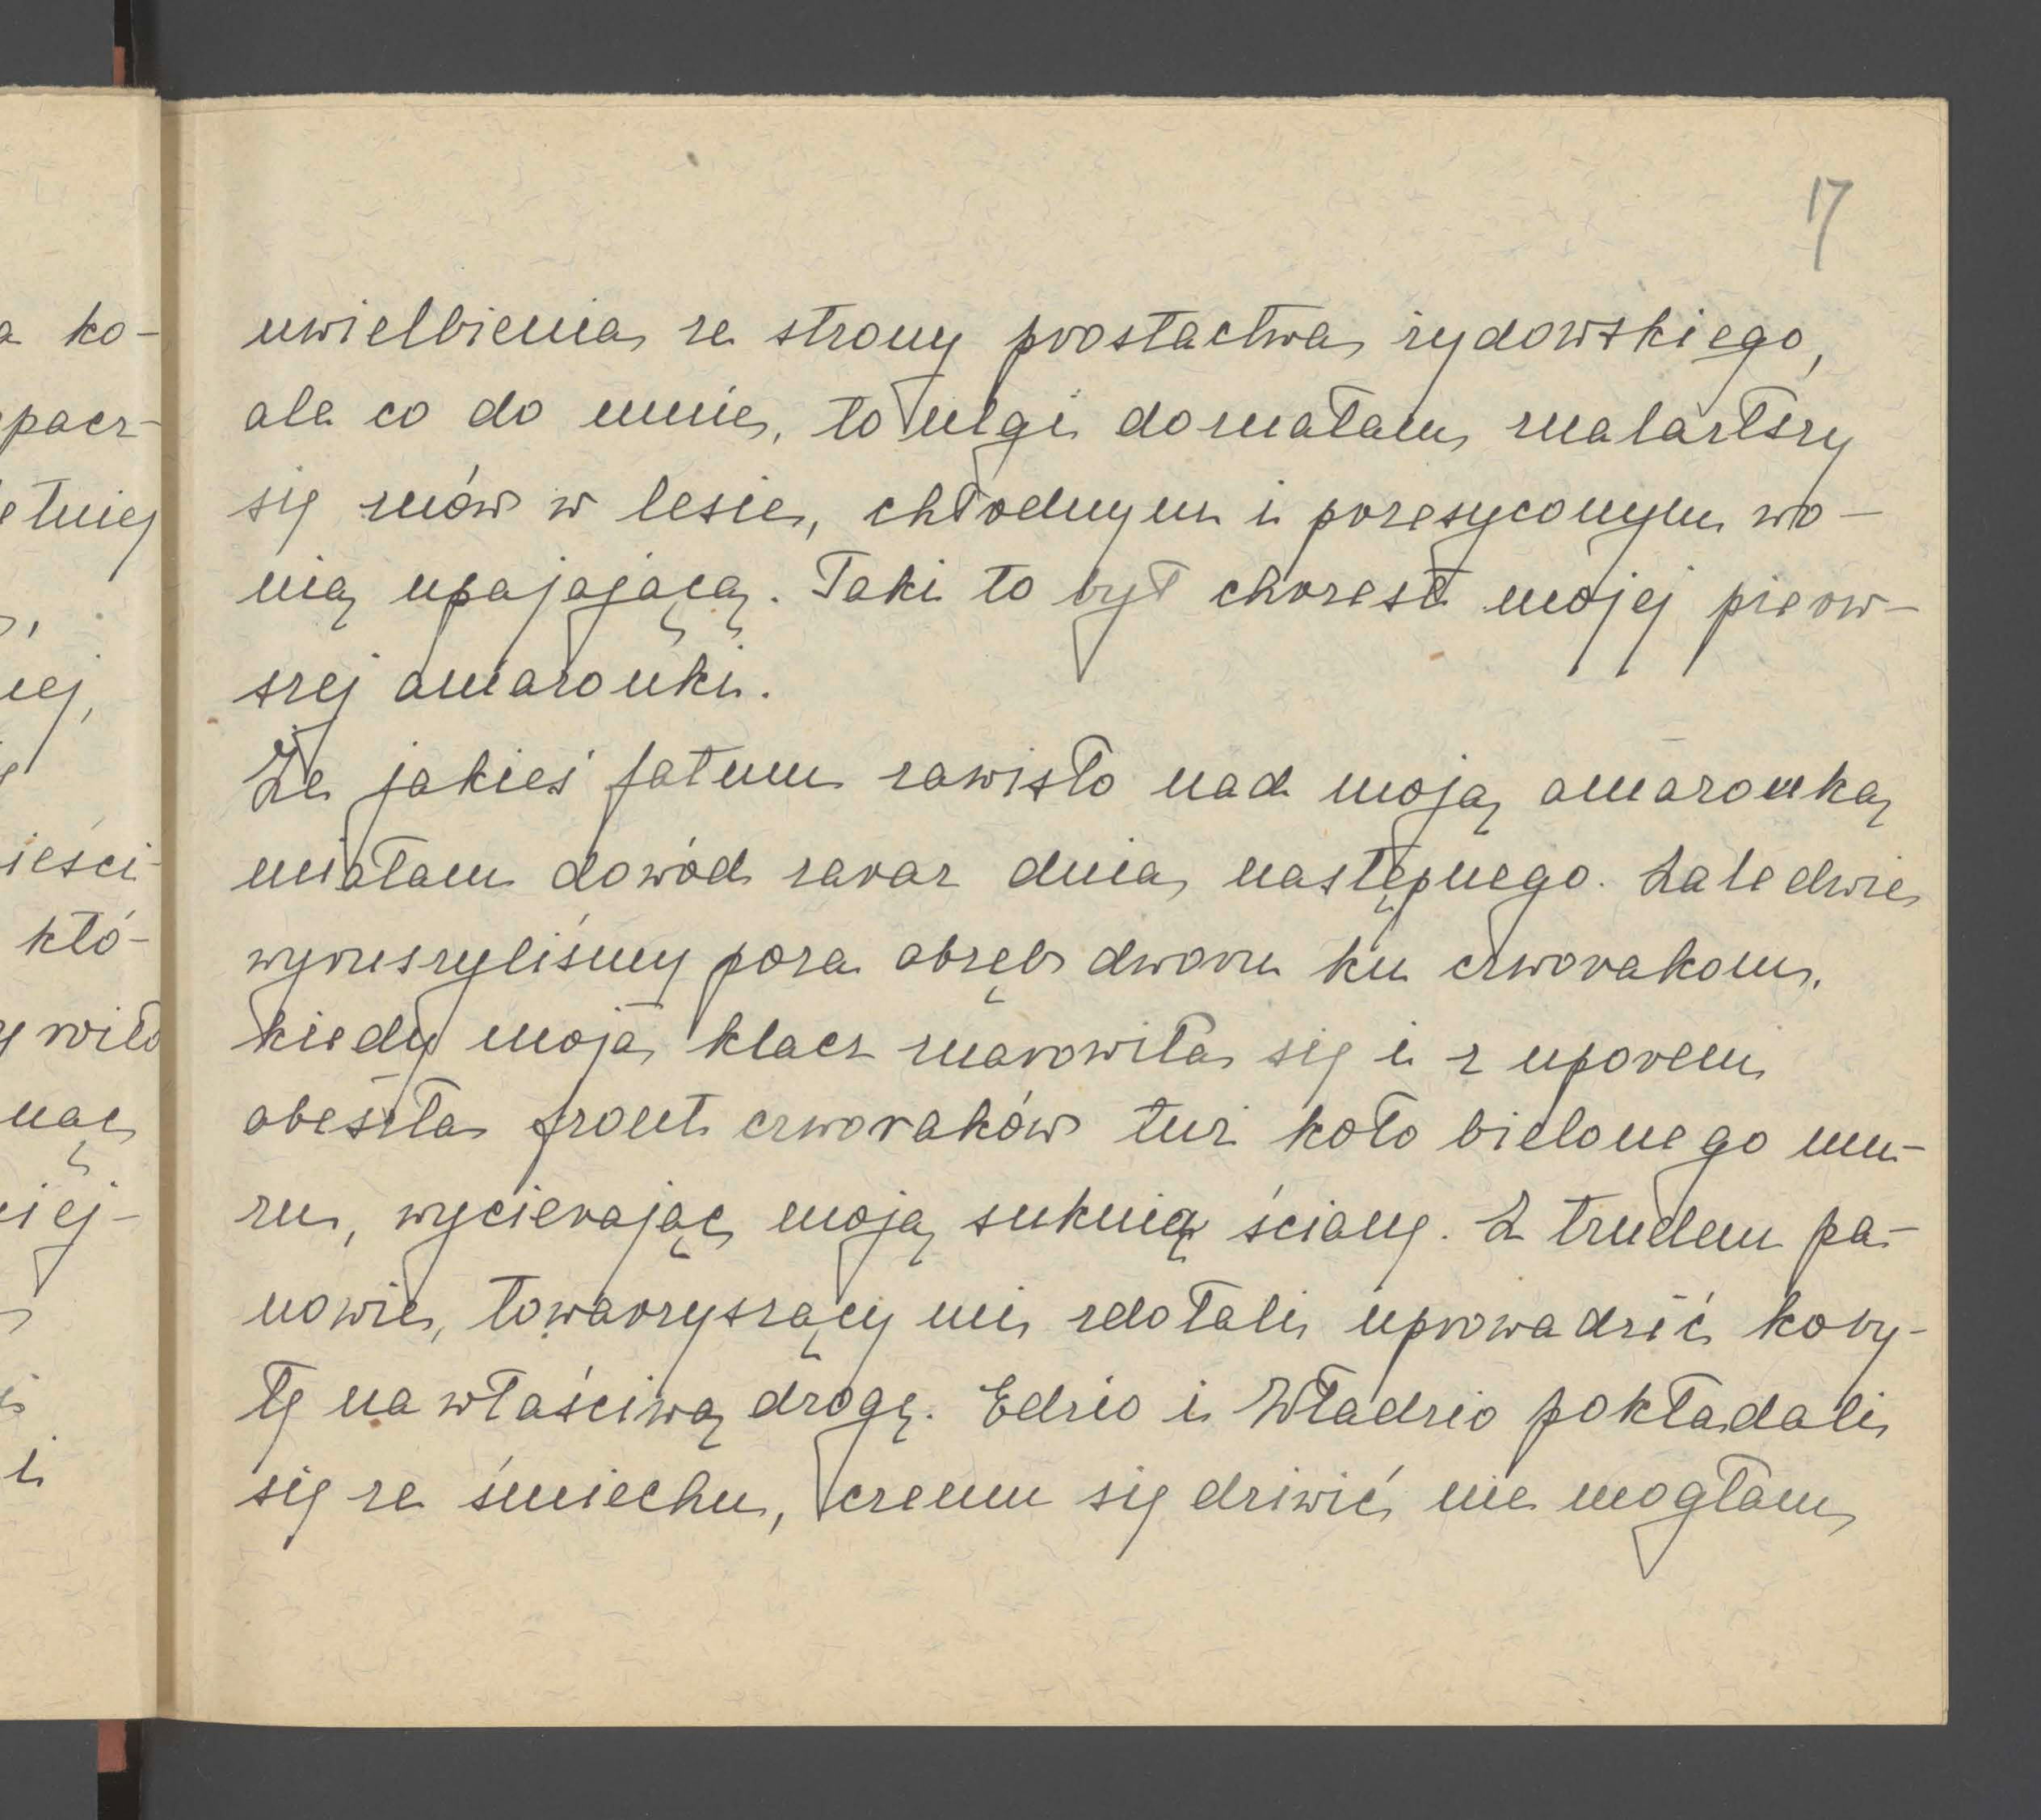 17
uwielbienia ze strony prostactwa żydowskiego,
ale co do mnie, to ulgi doznałam znalazłszy
się znów w lesie, chłodnym i przesyconym wo-
nią upajającą. Taki to był chrzest mojej pierw-
szej amazonki.
Że jakieś fatum zawisło nad moją amazonką
miałam dowód zaraz dnia następnego. Zaledwie
wyruszyliśmy poza obręb dworu ku czworakom,
kiedy moja klacz znarowiła się i z uporem
obeszła front czworaków tuż koło bielonego mu-
ru, wycierając moją suknią ściany. Z trudem pa-
nowie, towarzyszący mi zdołali uprowadzić koby-
łę na właściwą drogę. Edzio i Władzio pokładali
się ze śmiechu, czemu się dziwić nie mogłam
a ko-
pacz-
etniej
iej,
ieści
któ-
nąc
iej-
i